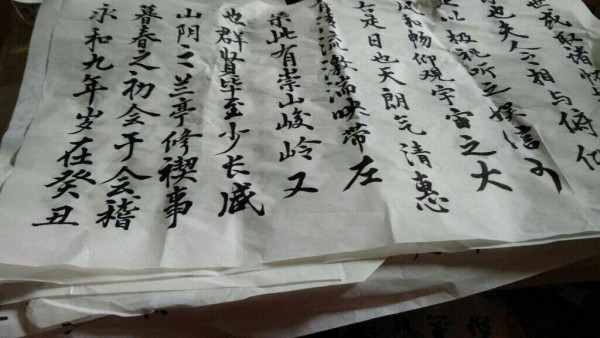 永和九年岁在癸丑
暮春之初会于会稽
山阴之兰亭修禊事
也群贤毕至少长咸
集此有崇山峻岭又
清流激湍映带左
是日也天朗气清惠
风和畅仰观宇宙之大
以极视听之娱信可
也夫人之相与俯仰
世或取诸怀